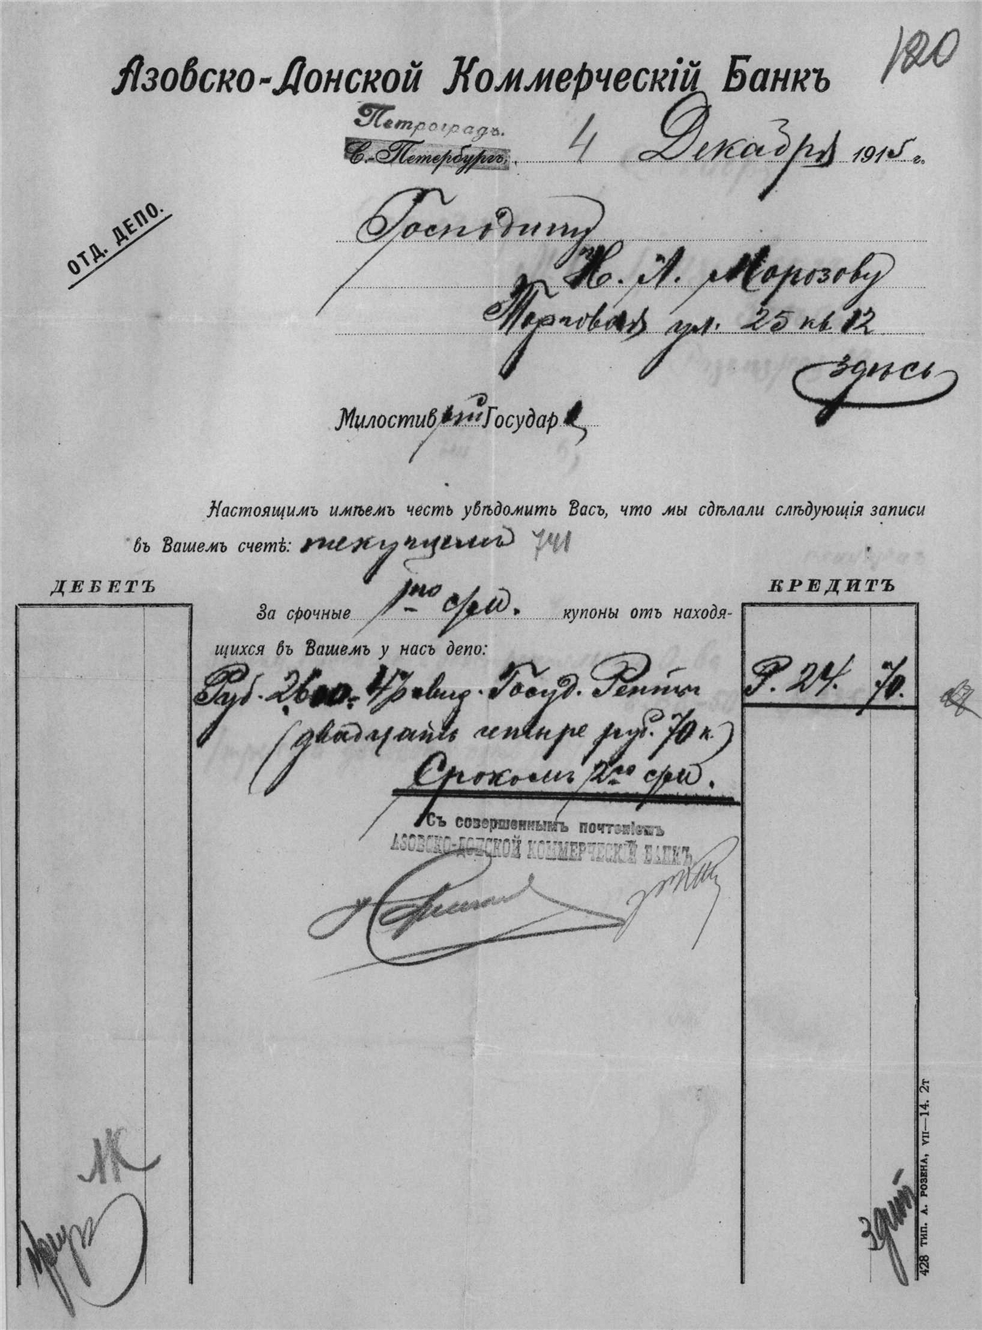 120
Азовско-Донской Коммерческій Банкъ
Петроградъ.
С.-Петербургъ, 4 Декабря 1915 г.
ОТД. ДЕПО.
Господину
Н. А. Морозову
Торговая ул. 25 кв. 12
Здѣсь
Милостивый Государь
Настоящимъ имѣемъ честь увѣдомить Васъ, что мы сдѣлали слѣдующія записи
въ Вашемъ счетѣ: текущемъ 741
ДЕБЕТЪ
КРЕДИТЪ
За срочные 1го с/м. купоны отъ находя-
щихся въ Вашемъ у насъ депо:
Руб. 2600.- 4% свид. Госуд. Ренты Р. 24. 70.
(двадцать четыре руб. 70 к.)
Срокомъ 2го с/м.
Съ совершеннымъ почтеніемъ
АЗОВСКО-ДОНСКОЙ КОММЕРЧЕСКІЙ БАНКЪ
428 ТИП. А. РОЗЕНА, VII—14. 2т